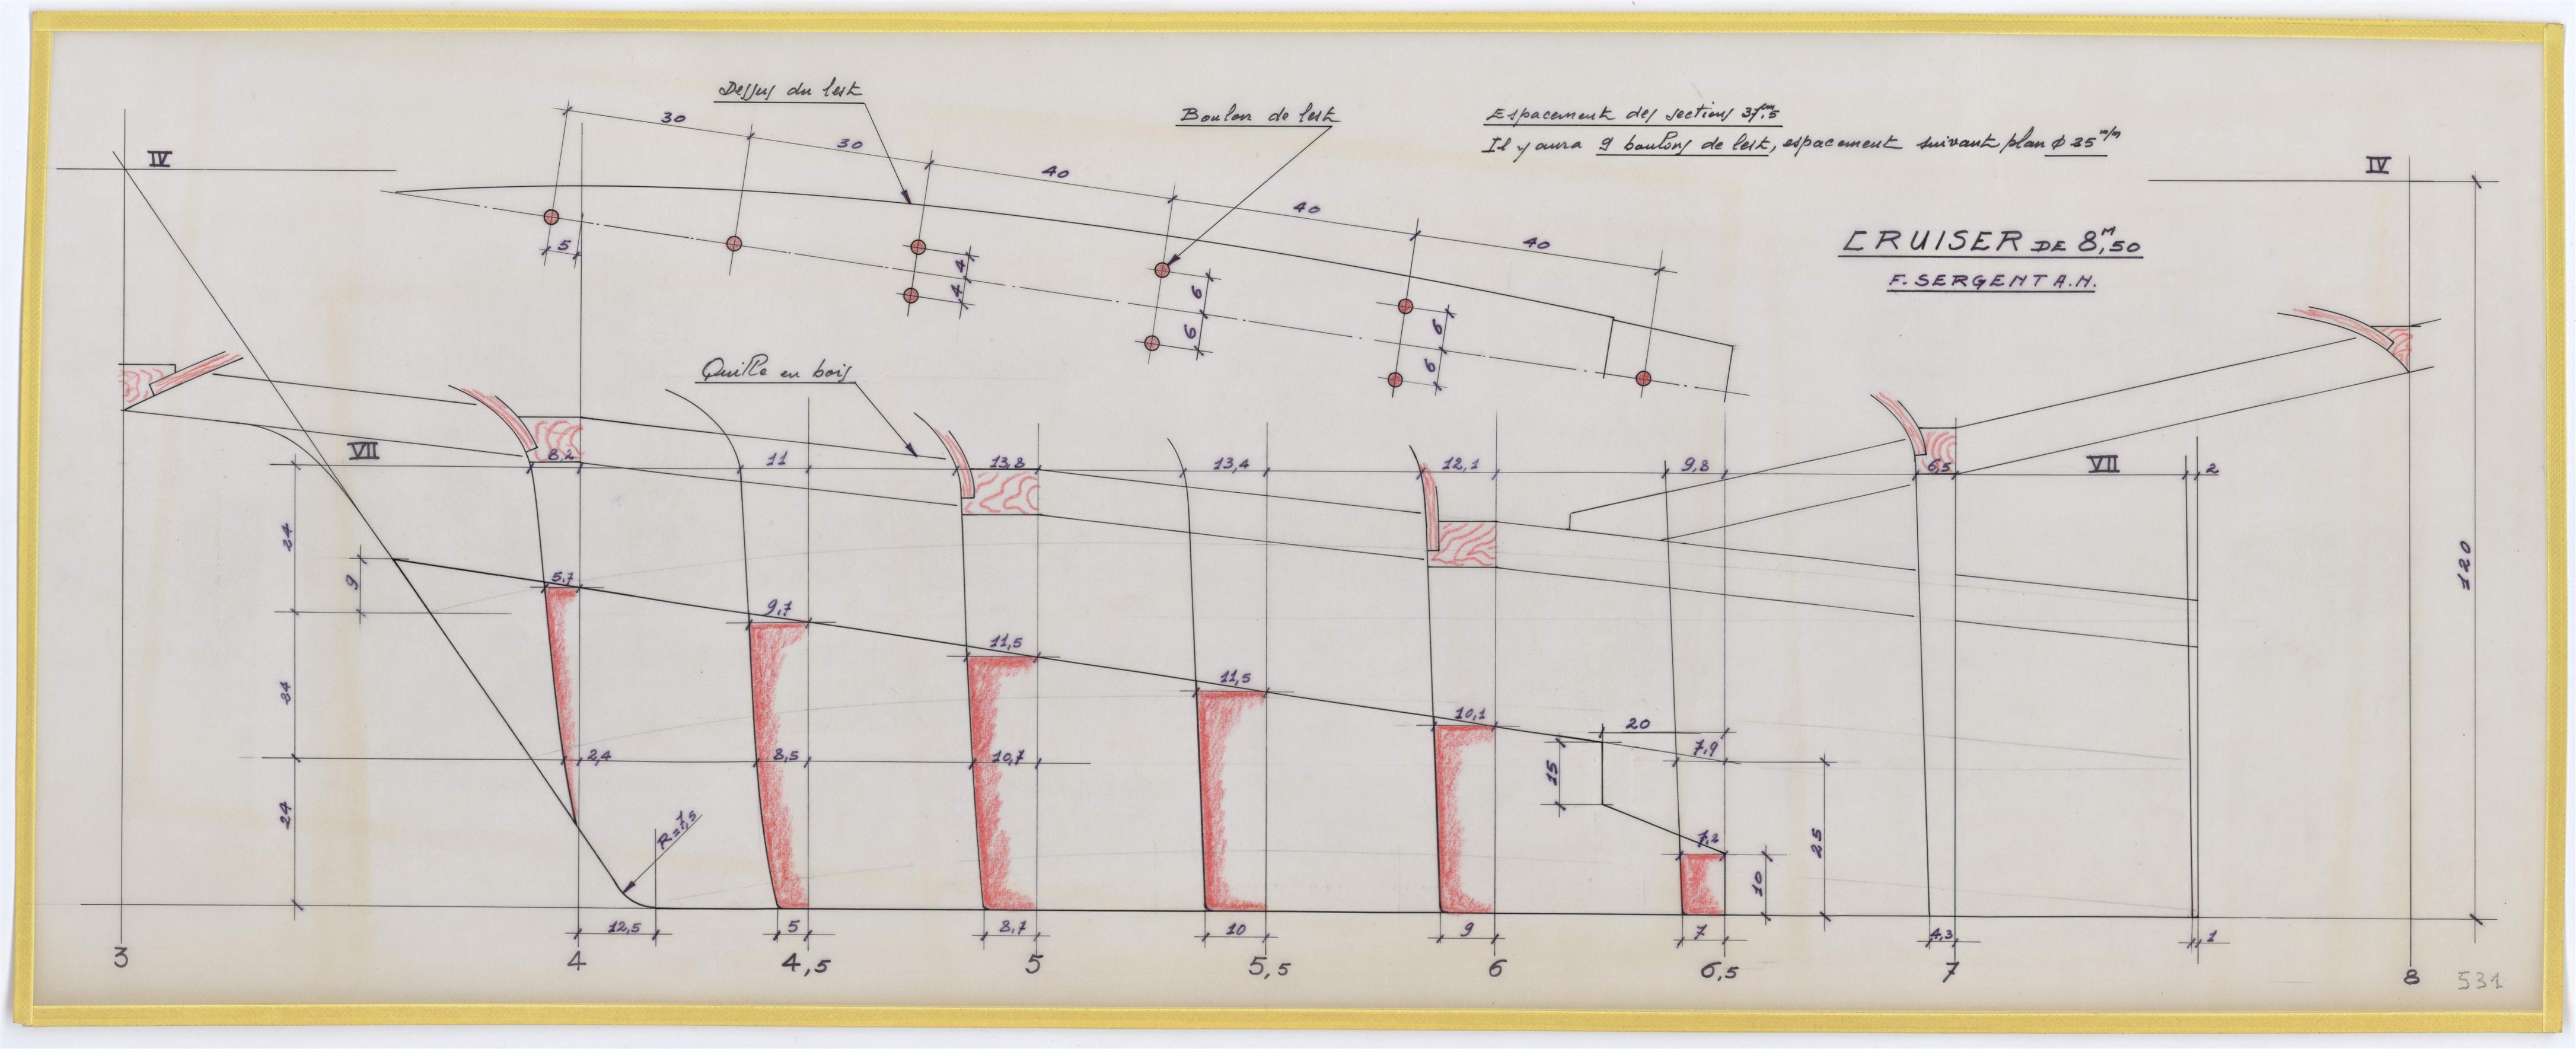 Dessus du lest
Boulon de lest
Espacement des sections 37,5 cm
Il y aura 9 boulons de lest, espacement suivant plan ϕ 25 m/m
IV
IV
30
30
40
40
40
CRUISER DE 8,50 M
F. SERGENT A.N.
5
4
4
6
6
6
6
Quille en bois
VII
VII
8,2
11
13,8
13,4
12,1
9,8
6,5
2
24
9
24
24
120
5,7
9,7
11,5
11,5
10,1
20
7,9
15
2,4
8,5
10,7
R=7,5
7,2
25
10
12,5
5
8,7
10
9
7
4,3
1
3
4
4,5
5
5,5
6
6,5
7
8
531